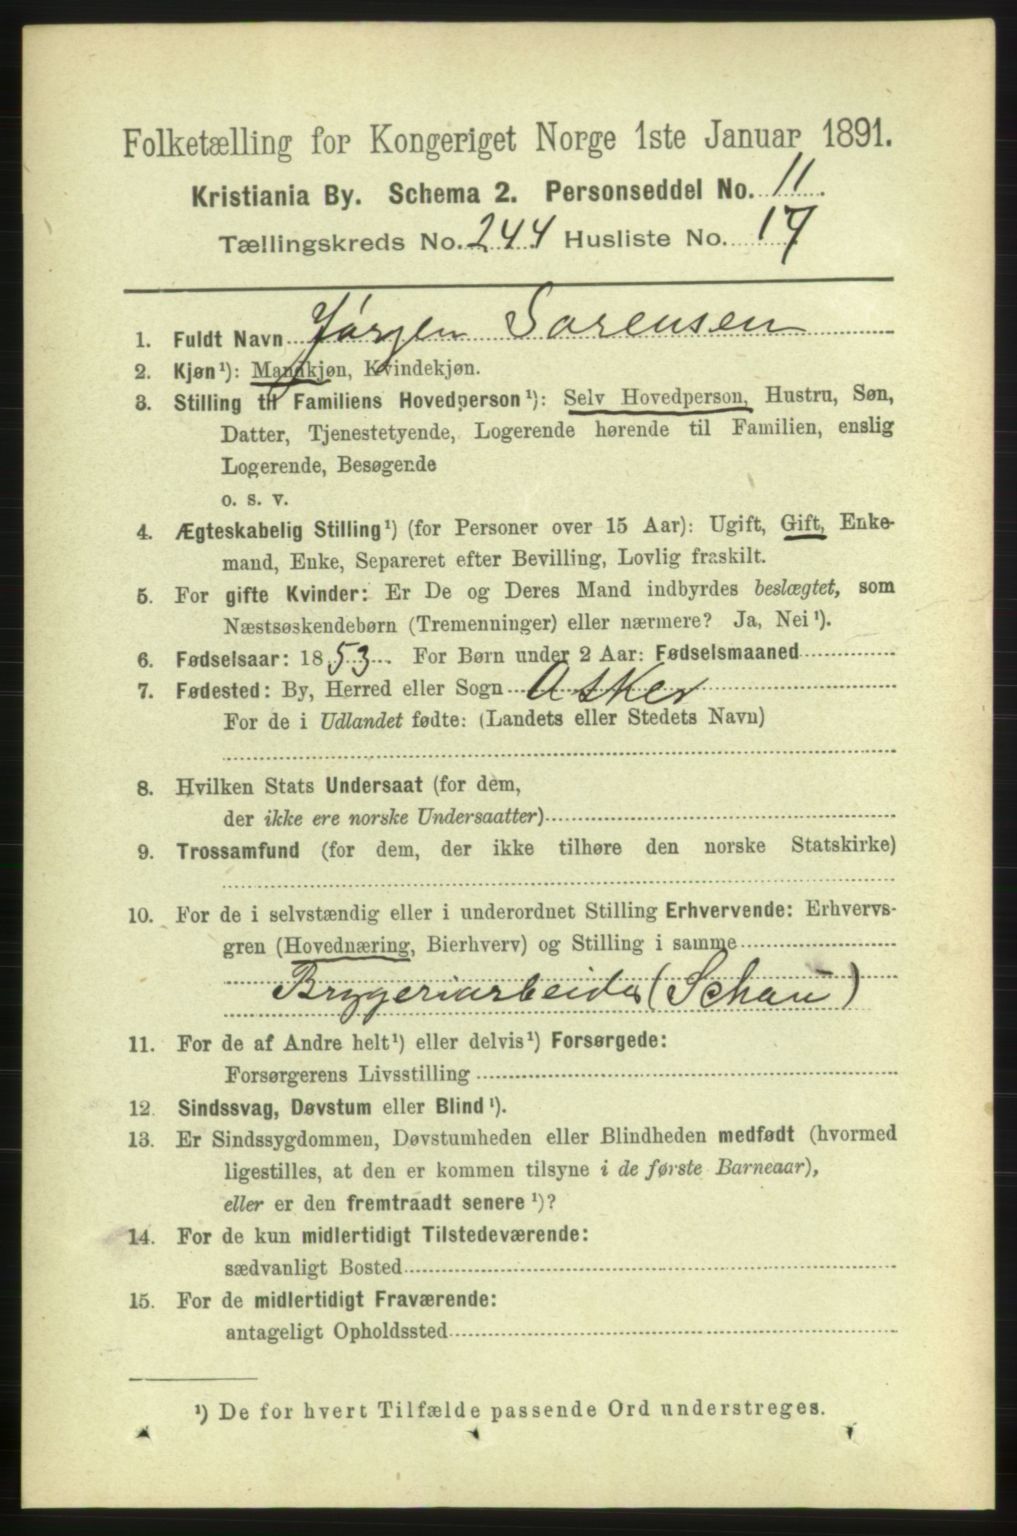 Folketælling for Kongeriget Norge 1ste Januar 1891.
Kristiania By. Schema 2. Personseddel No. 11.
Tællingskreds No. 244 Husliste No. 17
1. Fuldt Navn Jørgen Sørensen
2. Kjøn¹): Mandkjøn, Kvindekjøn.
3. Stilling til Familiens Hovedperson¹): Selv Hovedperson, Hustru, Søn,
Datter, Tjenestetyende, Logerende hørende til Familien, enslig
Logerende, Besøgende
o. s. v.
4. Ægteskabelig Stilling¹) (for Personer over 15 Aar): Ugift, Gift, Enke-
mand, Enke, Separeret efter Bevilling, Lovlig fraskilt.
5. For gifte Kvinder: Er De og Deres Mand indbyrdes beslægtet, som
Næstsøskendebørn (Tremenninger) eller nærmere? Ja, Nei¹).
6. Fødselsaar: 1853. For Børn under 2 Aar: Fødselsmaaned
7. Fødested: By, Herred eller Sogn Asker
For de i Udlandet fødte: (Landets eller Stedets Navn)
8. Hvilken Stats Undersaat (for dem,
der ikke ere norske Undersaatter)
9. Trossamfund (for dem, der ikke tilhøre den norske Statskirke)
10. For de i selvstændig eller i underordnet Stilling Erhvervende: Erhvervs-
gren (Hovednæring, Bierhverv) og Stilling i samme
Bryggeriarbeider (Schou)
11. For de af Andre helt¹) eller delvis¹) Forsørgede:
Forsørgerens Livsstilling
12. Sindssvag, Døvstum eller Blind¹).
13. Er Sindssygdommen, Døvstumheden eller Blindheden medfødt (hvormed
ligestilles, at den er kommen tilsyne i de første Barneaar),
eller er den fremtraadt senere¹)?
14. For de kun midlertidigt Tilstedeværende:
sædvanligt Bosted
15. For de midlertidigt Fraværende:
antageligt Opholdssted
¹) De for hvert Tilfælde passende Ord understreges.